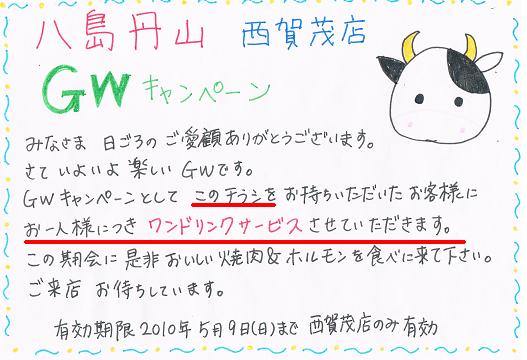 八島丹山 西賀茂店
GWキャンペーン
みなさま 日ごろの ご愛顧ありがとうございます。
さて いよいよ 楽しい GWです。
GWキャンペーンとして このチラシを お持ちいただいた お客様に
お一人様につき ワンドリンクサービス させていただきます。
この期会に 是非 おいしい焼肉&ホルモンを食べに来て下さい。
ご来店 お待ちしています。
有効期限 2010年5月9日(日)まで 西賀茂店のみ有効